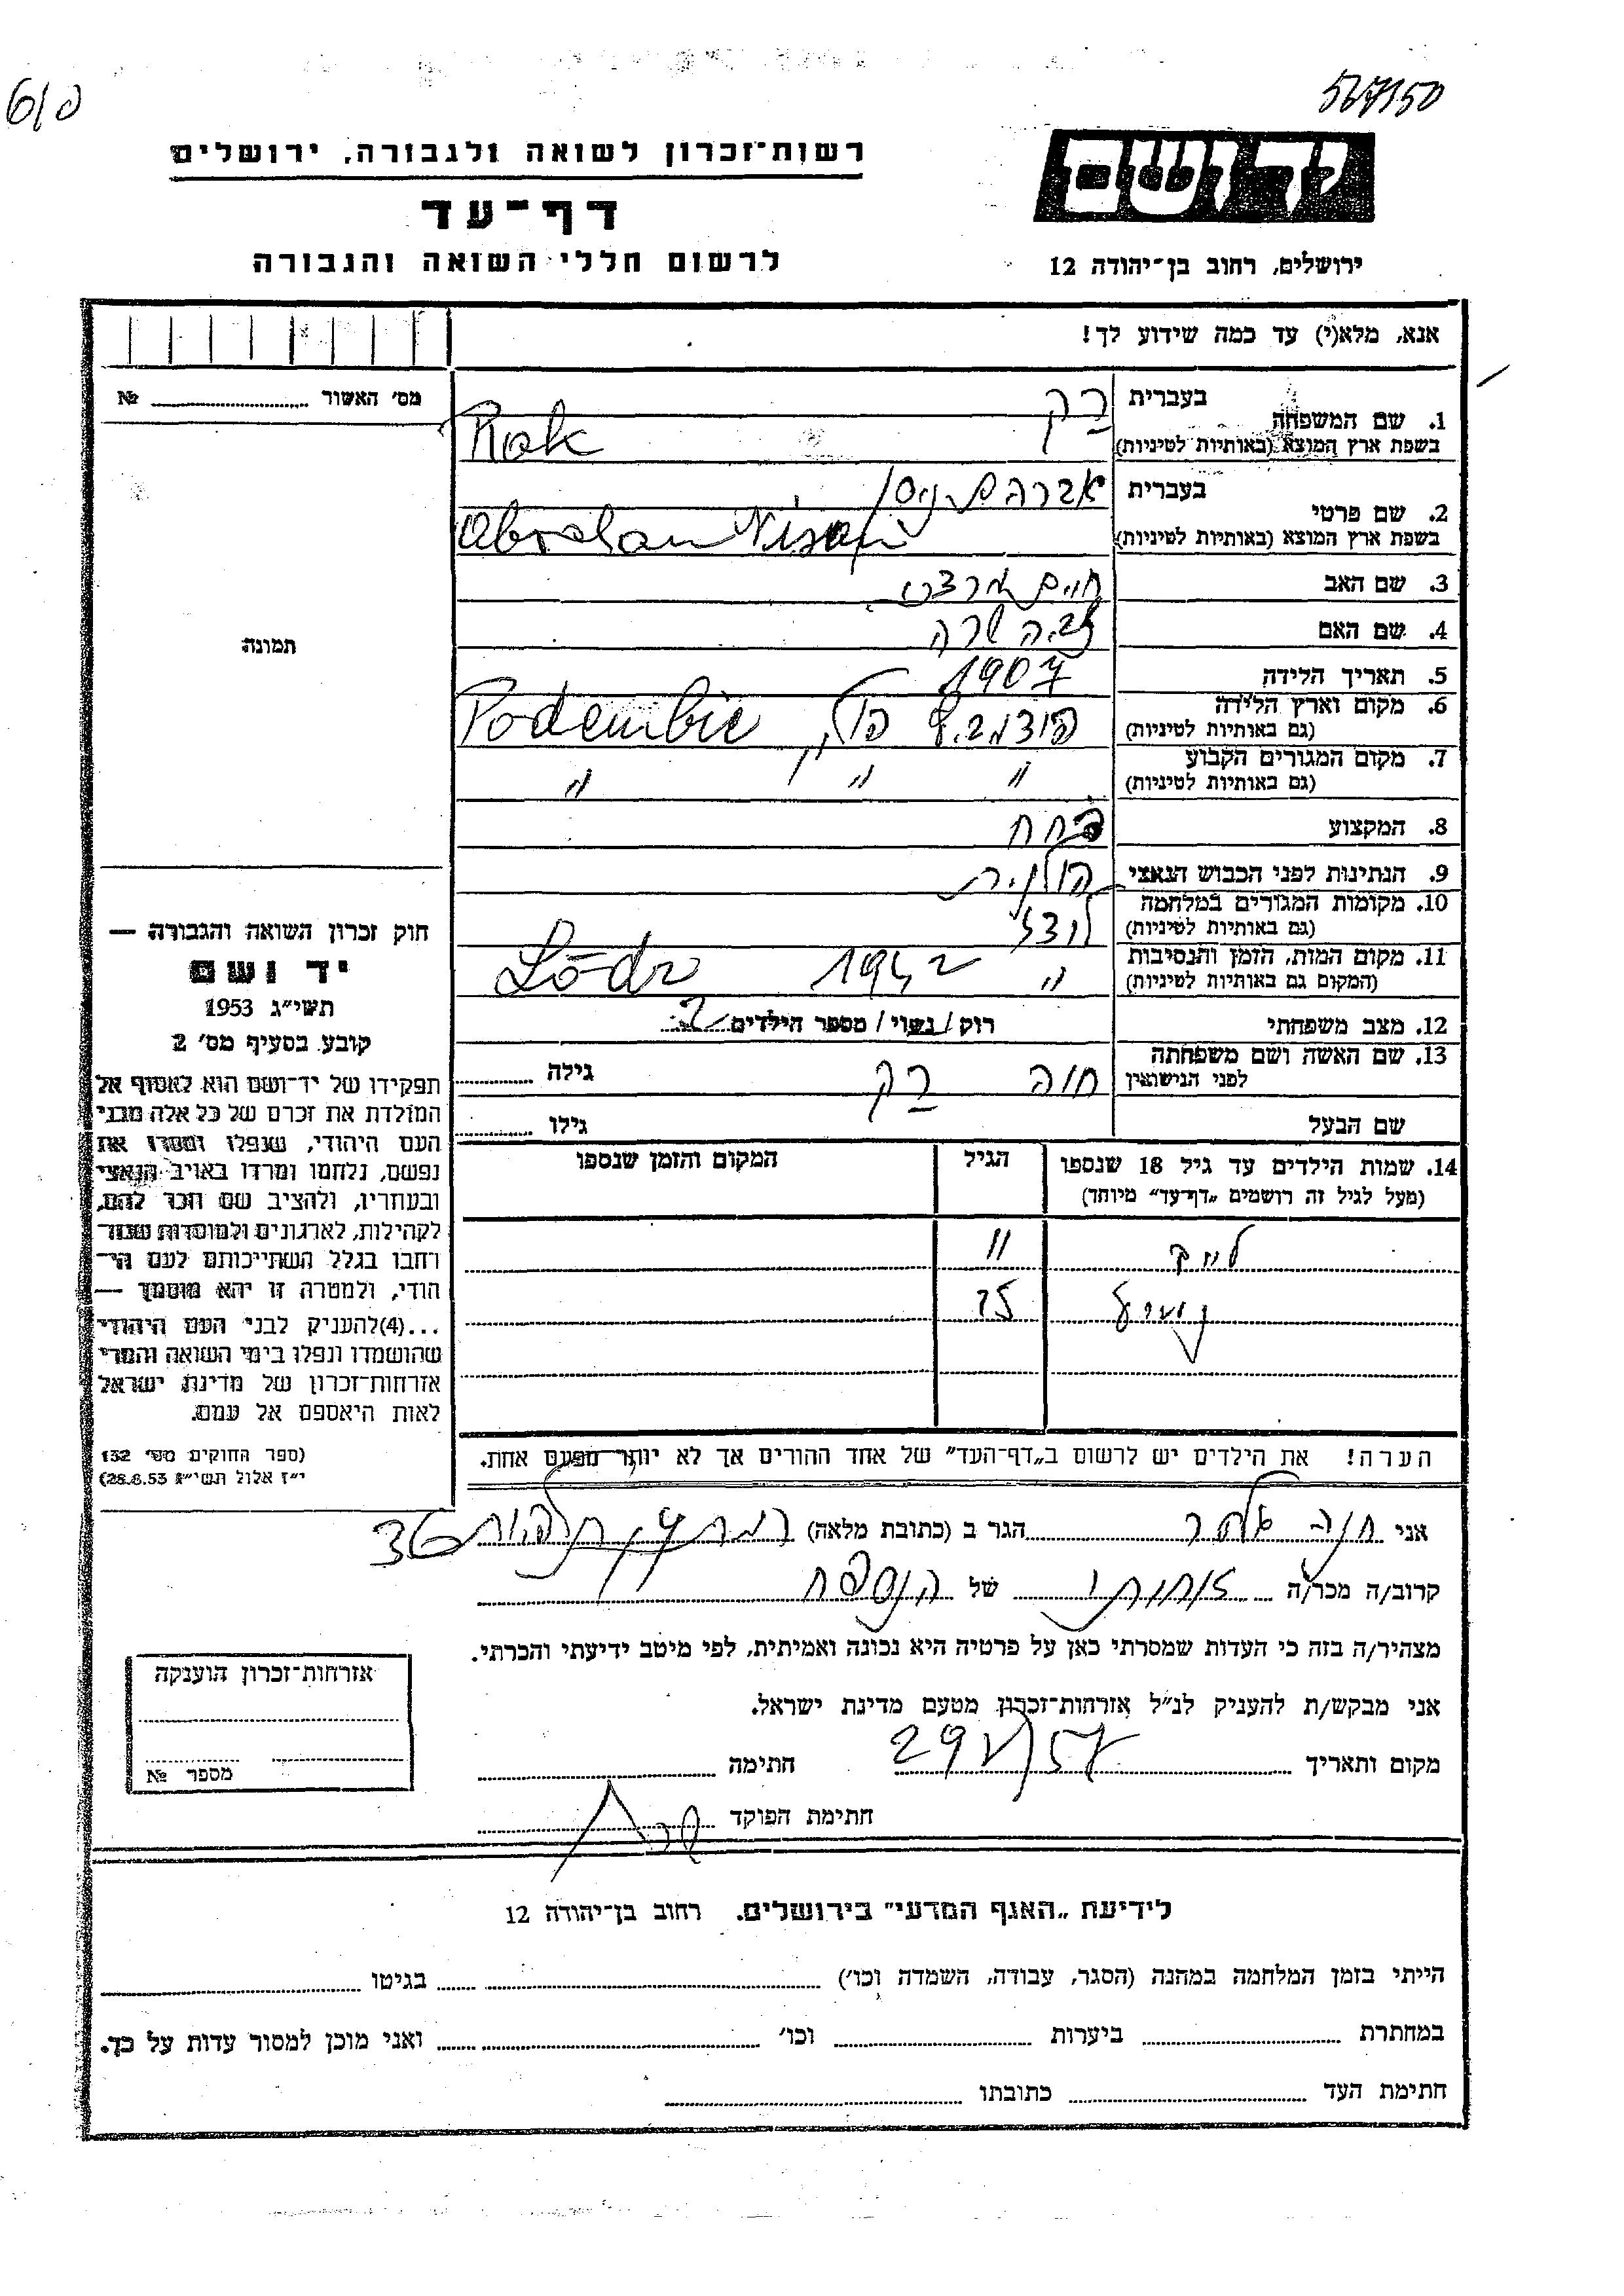 567150
פ/6
יד ושם
ירושלים, רחוב בן־יהודה 12
רשות־זכרון לשואה ולגבורה, ירושלים
דף־עד
לרשום חללי השואה והגבורה
אנא, מלא(י) עד כמה שידוע לך!
1. שם המשפחה בעברית רק
בשפת ארץ המוצא (באותיות לטיניות) Rak
2. שם פרטי בעברית אברהם ניסן
בשפת ארץ המוצא (באותיות לטיניות) Abraham Nisan
3. שם האב חיים
4. שם האם שרה
5. תאריך הלידה 1907
6. מקום וארץ הלידה
(גם באותיות לטיניות) פולין Podembie
7. מקום המגורים הקבוע
(גם באותיות לטיניות) " " "
8. המקצוע פחח
9. הנתינות לפני הכבוש הנאצי פולנית
10. מקומות המגורים במלחמה
(גם באותיות לטיניות) לודז
11. מקום המות, הזמן והנסיבות
(המקום גם באותיות לטיניות) " 1942 Lódz
12. מצב משפחתי רוק / נשוי / מספר הילדים 2
13. שם האשה ושם משפחתה
לפני הנישואין חוה רק גילה
שם הבעל גילו
14. שמות הילדים עד גיל 18 שנספו
(מעל לגיל זה רושמים „דף־עד" מיוחד)
הגיל
המקום והזמן שנספו
11
הערה! את הילדים יש לרשום ב„דף־העד" של אחד ההורים אך לא יותר מפעם אחת.
מס' האשור №
תמונה
חוק זכרון השואה והגבורה —
יד ושם
תשי"ג 1953
קובע בסעיף מס' 2
תפקידו של יד־ושם הוא לאסוף אל
המולדת את זכרם של כל אלה מבני
העם היהודי, שנפלו ומסרו את
נפשם, נלחמו ומרדו באויב הנאצי
ובעוזריו, ולהציב שם וזכר להם,
לקהילות, לארגונים ולמוסדות שנה־
רחבו בגלל השתייכותם לעם הי־
הודי, ולמטרה זו יהא מוסמך —
...(4)להעניק לבני העם היהודי
שהושמדו ונפלו בימי השואה והמרי
אזרחות־זכרון של מדינת ישראל
לאות היאספם אל עמם.
(ספר החוקים מס' 132
י"ז אלול תשי"ג 28.8.53)
אני חנה הגר ב (כתובת מלאה) רמת גן 36
קרוב/ה מכר/ה אחותו של הנספה
מצהיר/ה בזה כי העדות שמסרתי כאן על פרטיה היא נכונה ואמיתית, לפי מיטב ידיעתי והכרתי.
אני מבקש/ת להעניק לנ"ל אזרחות־זכרון מטעם מדינת ישראל.
מקום ותאריך 29/V/57 חתימה
חתימת הפוקד
אזרחות־זכרון הוענקה
מספר №
לידיעת „האגף המדעי" בירושלים. רחוב בן־יהודה 12
הייתי בזמן המלחמה במחנה (הסגר, עבודה, השמדה וכו') בגיטו
במחתרת ביערות וכו' ואני מוכן למסור עדות על כך.
חתימת העד כתובתו